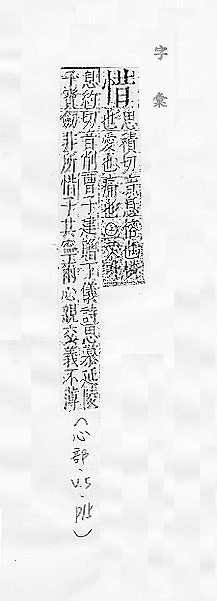 字彙
惜
思積切音息也憐
也愛也痛也○又叶
息約切音削曹子建贈丁儀詩思慕延陵
子寶劍非所惜子其寧爾心親交義不薄
(心部·V.5·)